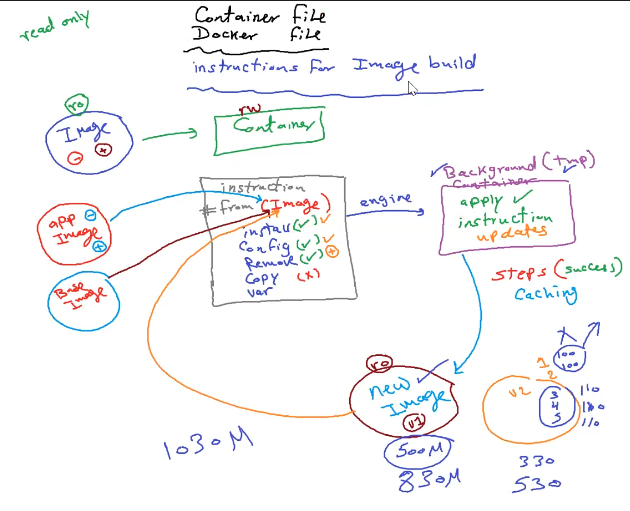 read only
Container file
Docker file
instructions for Image build
ro
Image
- +
rw
Container
instruction
#from (Image)
install (✓) ✓
Config (✓) ✓
Remove (✓) +
Copy (x)
var
app
Image
- +
Base
Image
engine
✓ Background (tmp) ✓
Container
apply ✓
instruction
updates
steps (success)
Caching
ro
new
Image
v1
500M
830M
1030M
X
100
100
1
2
v2
3
4
5
110
110
330
530